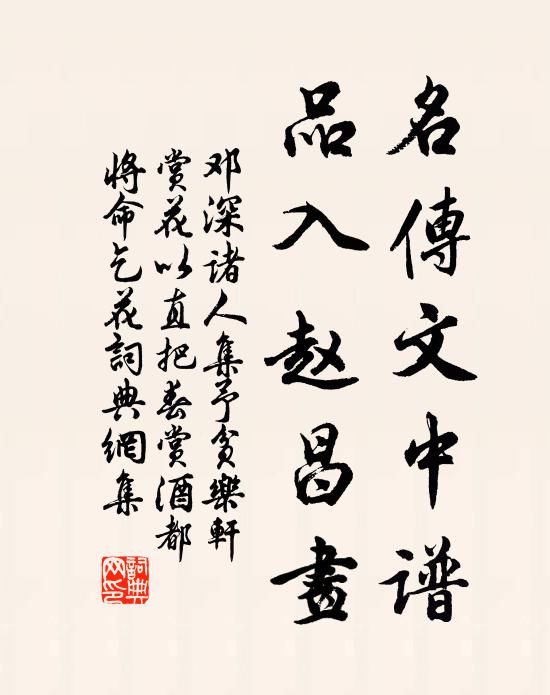 名傳文中譜
品入赵昌畫
邓深诸人集予貧樂軒
賞花以直把春賞酒都
將命乞花詞典網集
詞典网印